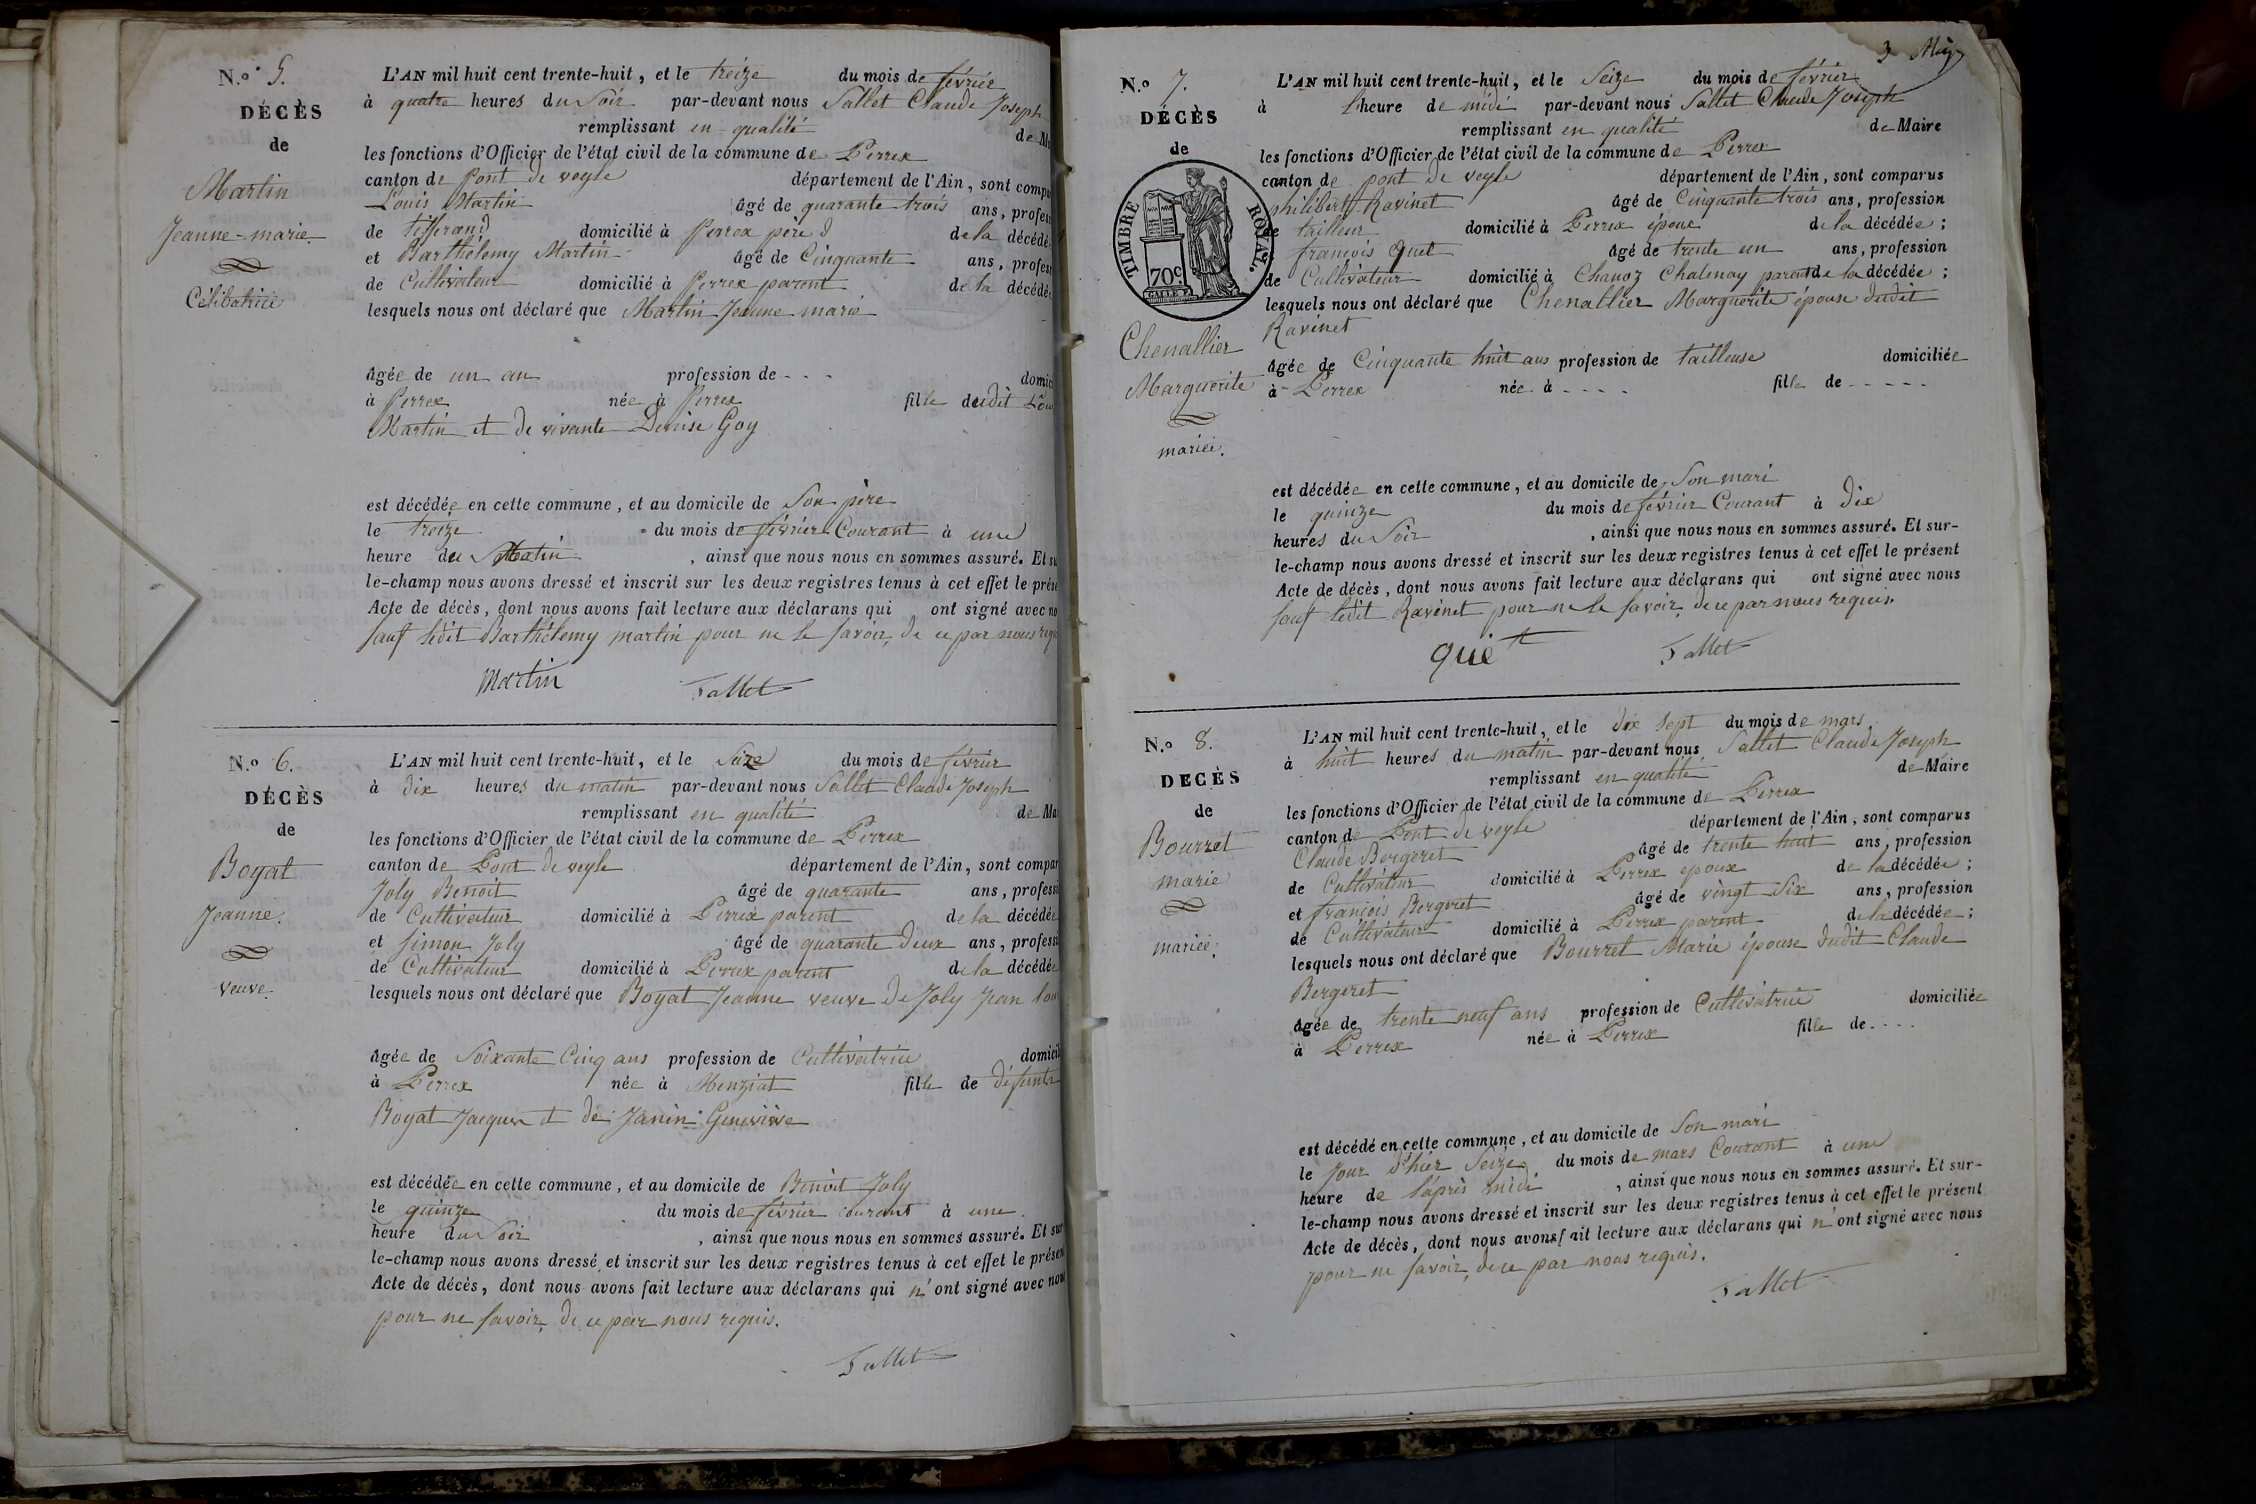 N.º 5.
DÉCÈS
de
Martin
Jeanne-marie
Célibatrice
L'AN mil huit cent trente-huit, et le treize du mois de février
à quatre heures du Soir par-devant nous Sallet Claude Joseph
remplissant en qualité de
les fonctions d'Officier de l'état civil de la commune de Perrex
canton de Pont de veyle département de l'Ain, sont
Louis Martin âgé de quarante trois ans,
de tisserand domicilié à Perrex père de la
et Barthélemy Martin âgé de Cinquante ans,
de Cultivateur domicilié à Perrex parent de la
lesquels nous ont déclaré que Martin Jeanne marie
âgée de un an profession de - - -
à Perrex née à Perrex fille dudit
Martin et de vivante Denise Goy
est décédée en cette commune, et au domicile de Son père
le treize du mois de février Courant à une
heure du Matin , ainsi que nous nous en sommes assuré. Et
le-champ nous avons dressé et inscrit sur les deux registres tenus à cet effet le
Acte de décès, dont nous avons fait lecture aux déclarans qui ont signé avec
sauf ledit Barthélemy martin pour ne le savoir, de ce par nous
Martin Sallet
N.º 6.
DÉCÈS
de
Boyat
Jeanne
veuve
L'AN mil huit cent trente-huit, et le Seize du mois de février
à dix heures du matin par-devant nous Sallet Claude Joseph
remplissant en qualité de
les fonctions d'Officier de l'état civil de la commune de Perrex
canton de Pont de veyle département de l'Ain, sont
Joly Benoit âgé de quarante ans,
de Cultivateur domicilié à Perrex parent de la décédée
et Simon Joly âgé de quarante deux ans,
de Cultivateur domicilié à Perrex parent de la décédée
lesquels nous ont déclaré que Boyat Jeanne veuve de Joly Jean
âgée de Soixante Cinq ans profession de Cultivatrice
à Perrex née à Menziat fille de défunts
Boyat Jacques et de Janin Geneviève
est décédée en cette commune, et au domicile de Benoit Joly
le quinze du mois de février courant à une
heure du Soir , ainsi que nous nous en sommes assuré. Et sur
le-champ nous avons dressé et inscrit sur les deux registres tenus à cet effet le
Acte de décès, dont nous avons fait lecture aux déclarans qui n'ont signé avec nous
pour ne savoir, de ce par nous requis.
Sallet
3
N.º 7.
DÉCÈS
de
TIMBRE ROYAL.
70c
Chenallier
Marguerite
mariée.
L'AN mil huit cent trente-huit, et le Seize du mois de février
à l'heure de midi par-devant nous Sallet Claude Joseph
remplissant en qualité de Maire
les fonctions d'Officier de l'état civil de la commune de Perrex
canton de pont de veyle département de l'Ain, sont comparus
philibert Ravinet âgé de Cinquante trois ans, profession
de tailleur domicilié à Perrex époux de la décédée ;
françois Quet âgé de trente un ans, profession
de Cultivateur domicilié à Chanoz Chatenay parent de la décédée ;
lesquels nous ont déclaré que Chenallier Marguerite épouse dudit
Ravinet
âgée de Cinquante huit ans profession de tailleuse domiciliée
à Perrex née à - - - - fille de - - - - -
est décédée en cette commune, et au domicile de Son mari
le quinze du mois de février Courant à dix
heures du Soir , ainsi que nous nous en sommes assuré. Et sur-
le-champ nous avons dressé et inscrit sur les deux registres tenus à cet effet le présent
Acte de décès, dont nous avons fait lecture aux déclarans qui ont signé avec nous
sauf ledit Ravinet pour ne le savoir, de ce par nous requis.
quet Sallet
N.º 8.
DÉCÈS
de
Bourret
marie
mariée.
L'AN mil huit cent trente-huit, et le dix sept du mois de mars
à huit heures du matin par-devant nous Sallet Claude Joseph
remplissant en qualité de Maire
les fonctions d'Officier de l'état civil de la commune de Perrex
canton de Pont de veyle département de l'Ain, sont comparus
Claude Bergeret âgé de trente huit ans, profession
de Cultivateur domicilié à Perrex époux de la décédée ;
et françois Bergeret âgé de vingt Six ans, profession
de Cultivateur domicilié à Perrex parent de la décédée ;
lesquels nous ont déclaré que Bourret Marie épouse dudit Claude
Bergeret
âgée de trente neuf ans profession de Cultivatrice domiciliée
à Perrex née à Perrex fille de - - - -
est décédé en cette commune, et au domicile de Son mari
le Jour d'hier Seize du mois de mars Courant à une
heure de l'après midi , ainsi que nous nous en sommes assuré. Et sur-
le-champ nous avons dressé et inscrit sur les deux registres tenus à cet effet le présent
Acte de décès, dont nous avons fait lecture aux déclarans qui n'ont signé avec nous
pour ne savoir, de ce par nous requis.
Sallet